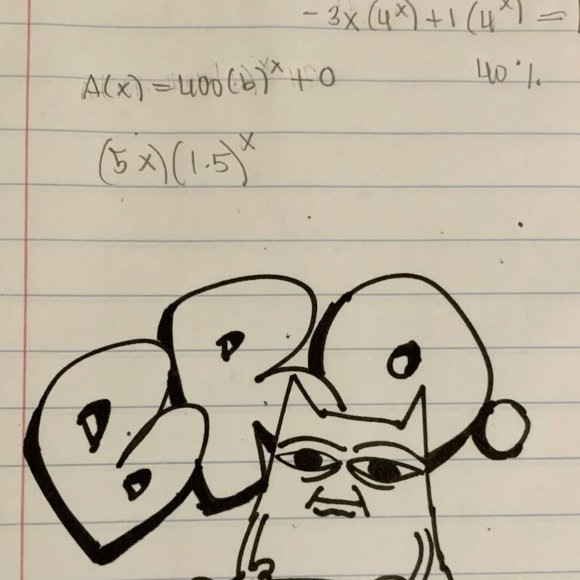 -3x(4^x)+1(4^x) =
40%
A(x) = 400(b)^x + 0
(5x)(1.5)^x
BRO.